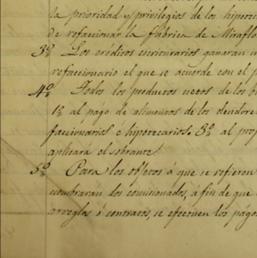 la prioridad y privilegios de los hipotec
de refaccionar la fábrica de Miraflo
3º Los créditos escriturarios ganarán un
refaccionario el que se acuerde con el p
4º Todos los productos netos de los bi
1º al pago de alimentos de los deudore
faccionarios e hipotecarios. 3º al prop
aplicará el sobrante.
5º Para los objetos á que se refieren
nombraran dos comisionados, a fin de que
arreglos ó contratos, se efectúen los págos